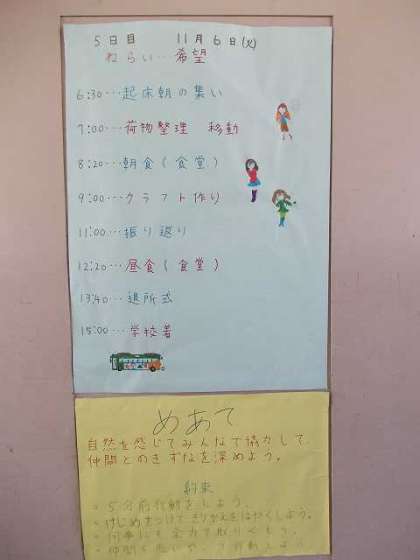 5日目 11月6日(火)
ねらい…希望
6:30…起床朝の集い
7:00…荷物整理 移動
8:20…朝食(食堂)
9:00…クラフト作り
11:00…振り返り
12:20…昼食(食堂)
13:40…退所式
15:00…学校着
めあて
自然を感じてみんなで協力して、
仲間とのきずなを深めよう。
約束
・5分前行動をしよう。
・けじめをつけてきりかえをはやくしよう。
・何事にも全力で取りくもう。
・仲間を思いやって行動しよう